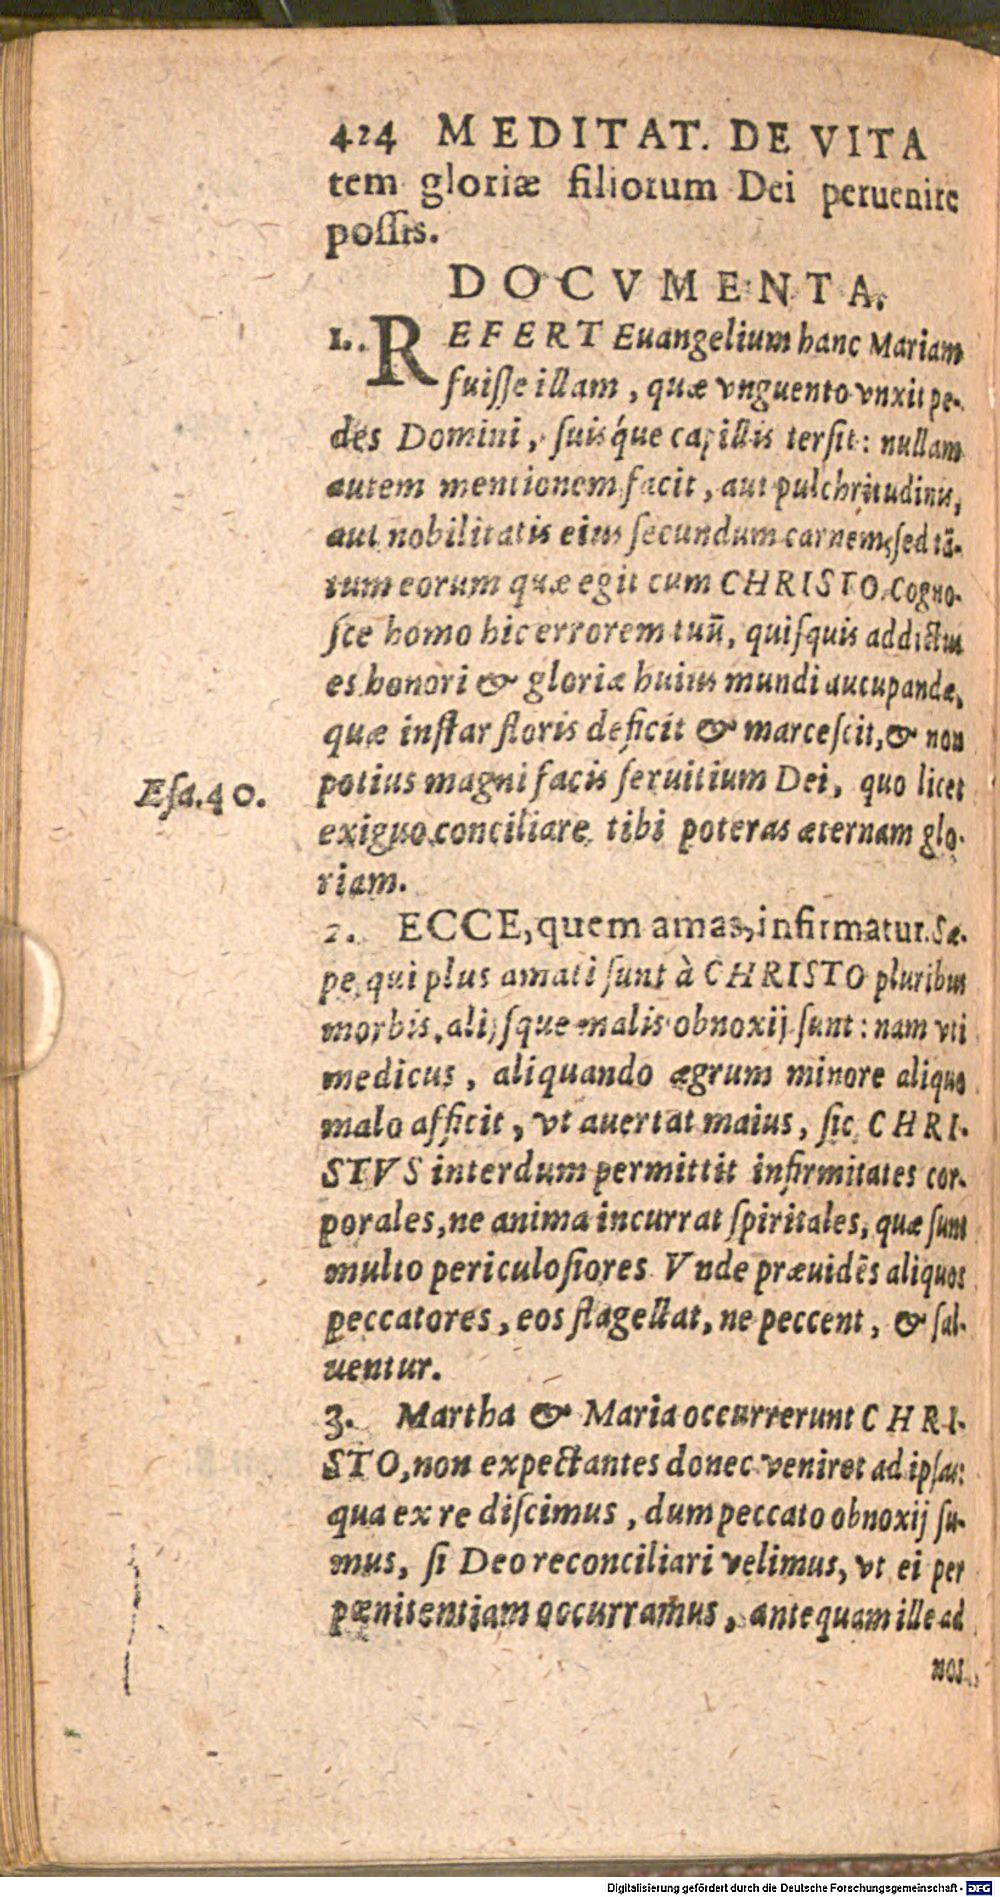 424 MEDITAT. DE VITA
tem gloriæ filiorum Dei peruenire
poſſis.
DOCVMENTA.
1. REFERT Euangelium hanc Mariam
fuiſſe illam, quæ vnguento vnxit pe-
des Domini, ſuisq́ue capillis terſit: nullam
autem mentionem facit, aut pulchritudinis,
aut nobilitatis eius ſecundum carnem, ſed tã-
tum eorum quæ egit cum CHRISTO. Cogno-
ſce homo hic errorem tuũ, quiſquis addictus
es honori & gloriæ huius mundi aucupandæ,
quæ inſtar floris deficit & marceſcit, & non
potius magni facis ſeruitium Dei, quo licet
Eſa. 40.
exiguo conciliare tibi poteras æternam glo-
riam.
2. ECCE, quem amas, infirmatur. Sæ-
pe qui plus amati ſunt à CHRISTO pluribus
morbis, alijſque malis obnoxij ſunt: nam vti
medicus, aliquando ægrum minore aliquo
malo afficit, vt auertat maius, ſic CHRI-
STVS interdum permittit infirmitates cor-
porales, ne anima incurrat ſpiritales, quæ ſunt
multo periculoſiores. Vnde præuidẽs aliquos
peccatores, eos flagellat, ne peccent, & ſal-
uentur.
3. Martha & Maria occurrerunt CHRI-
STO, non expectantes donec veniret ad ipſas:
qua ex re diſcimus, dum peccato obnoxij ſu-
mus, ſi Deo reconciliari velimus, vt ei per
pœnitentiam occurramus, antequam ille ad
nos.
Digitalisierung gefördert durch die Deutsche Forschungsgemeinschaft - DFG